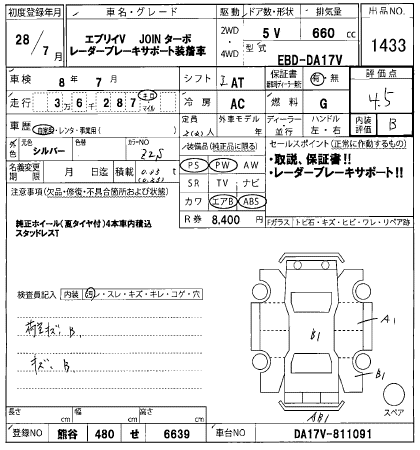 初度登録年月 車名・グレード 駆動 ドア数・形状 排気量 出品NO
28/7月 エブリイV JOIN ターボ レーダーブレーキサポート装着車 2WD ・ 4WD 5 V 660 cc 1433
型式 EBD-DA17V
車検 8年 7月 シフト IAT 保証書 有・無 評価点 4.5
走行 3万6千287 キロ マイル 冷房 AC 燃料 G
車歴 自家用・レンタ・事業用( ) 定員 外車モデル 年 ディーラー・並行 ハンドル 左・右 内装評価 B
外色 元色 シルバー 色替 カラーNO Z2S 装備品(純正品に限る) セールスポイント(正常に作動するもの)
名義変更期限 月 日迄 積載 t PS PW AW ・取説、保証書!!
・レーダーブレーキサポート!!
注意事項(欠品・修復・不具合箇所および状態) SR TV ナビ
カワ エアB ABS
純正ホイール(夏タイヤ付)4本車内積込 R券 8,400 円 Fガラス トビ石・キズ・ヒビ・ワレ・リペア跡
スタッドレスT
検査員記入 内装 ・スレ・キズ・キレ・コゲ・穴
荷室キズ、B1
キズ、B
A1
B1
B1
AB1
スペア
長さ cm 幅 cm 高さ cm
登録NO 熊谷 480 せ 6639 車台NO DA17V-811091